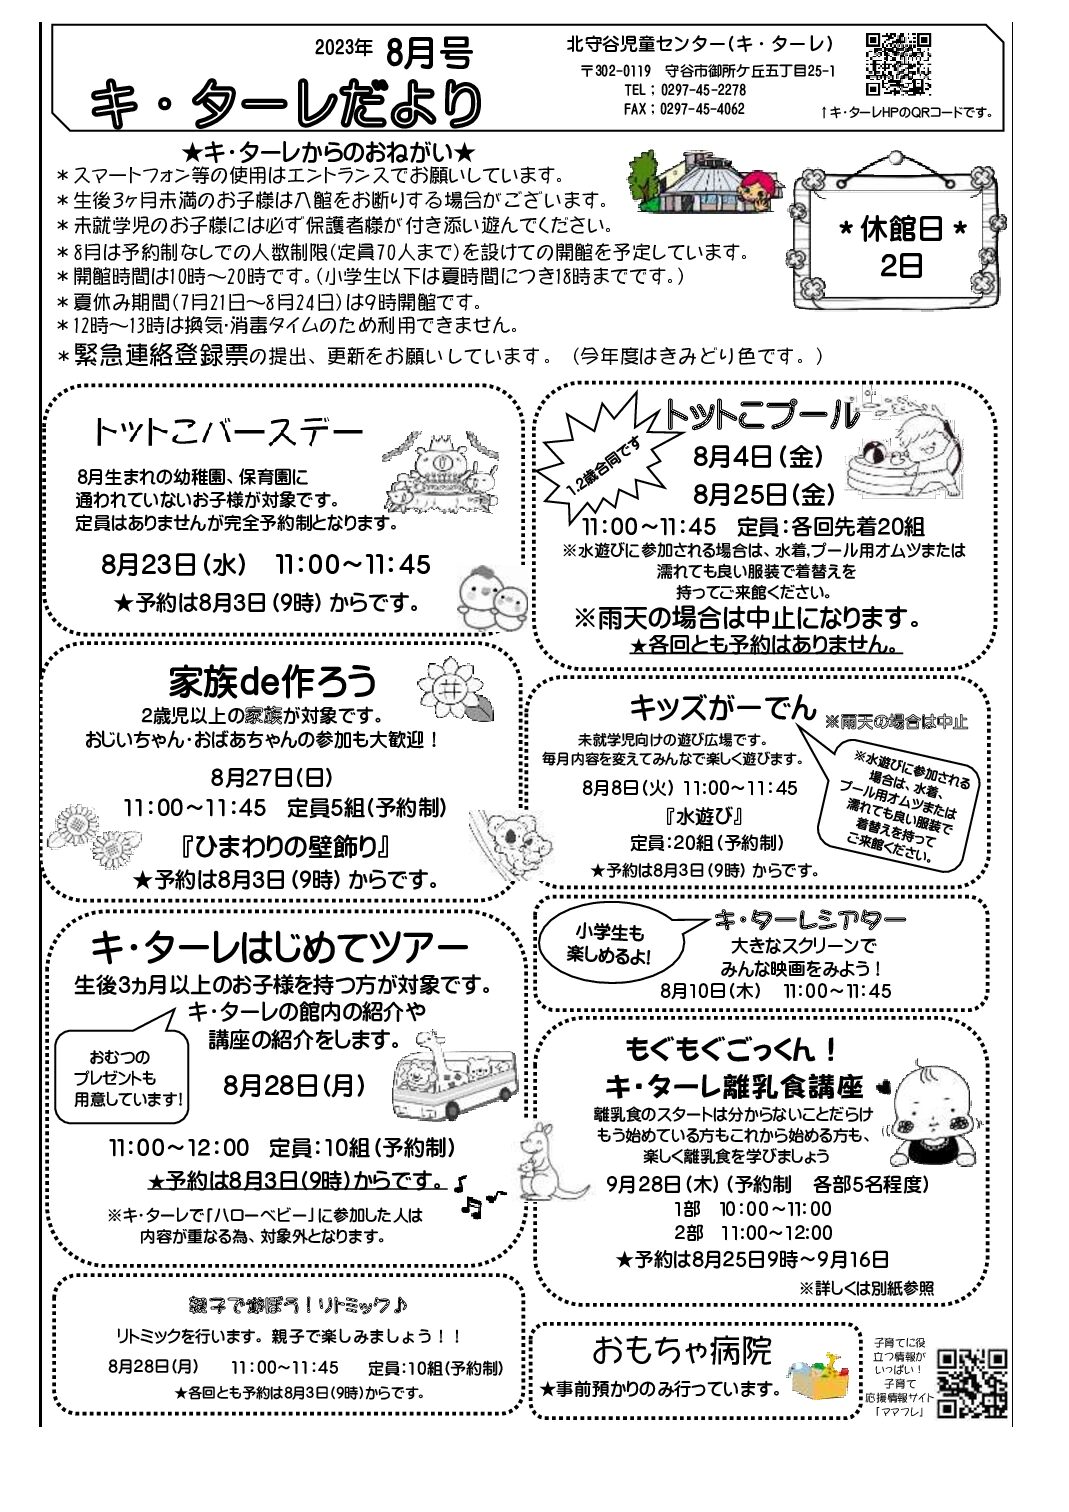 2023年 8月号
キ・ターレだより
北守谷児童センター(キ・ターレ)
〒302-0119 守谷市御所ケ丘五丁目25-1
TEL：0297-45-2278
FAX：0297-45-4062
↑キ・ターレHPのQRコードです。
★キ・ターレからのおねがい★
＊スマートフォン等の使用はエントランスでお願いしています。
＊生後3ヶ月未満のお子様は入館をお断りする場合がございます。
＊未就学児のお子様には必ず保護者様が付き添い遊んでください。
＊8月は予約制なしでの人数制限(定員70人まで)を設けての開館を予定しています。
＊開館時間は10時～20時です。(小学生以下は夏時間につき18時までです。)
＊夏休み期間(7月21日～8月24日)は9時開館です。
＊12時～13時は換気・消毒タイムのため利用できません。
＊緊急連絡登録票の提出、更新をお願いしています。（今年度はきみどり色です。）
＊休館日＊
2日
トットこバースデー
8月生まれの幼稚園、保育園に
通われていないお子様が対象です。
定員はありませんが完全予約制となります。
8月23日(水) 11:00～11:45
★予約は8月3日(9時)からです。
1.2歳合同です
トットこプール
8月4日(金)
8月25日(金)
11:00～11:45 定員：各回先着20組
※水遊びに参加される場合は、水着,プール用オムツまたは
濡れても良い服装で着替えを
持ってご来館ください。
※雨天の場合は中止になります。
★各回とも予約はありません。
家族de作ろう
2歳児以上の家族が対象です。
おじいちゃん・おばあちゃんの参加も大歓迎！
8月27日(日)
11:00～11:45 定員5組(予約制)
『ひまわりの壁飾り』
★予約は8月3日(9時)からです。
キッズがーでん ※雨天の場合は中止
未就学児向けの遊び広場です。
毎月内容を変えてみんなで楽しく遊びます。
8月8日(火) 11:00～11:45
『水遊び』
定員：20組(予約制)
★予約は8月3日(9時)からです。
※水遊びに参加される
場合は、水着、
プール用オムツまたは
濡れても良い服装で
着替えを持って
ご来館ください。
小学生も
楽しめるよ!
キ・ターレシアター
大きなスクリーンで
みんな映画をみよう！
8月10日(木) 11:00～11:45
キ・ターレはじめてツアー
生後3ヵ月以上のお子様を持つ方が対象です。
キ・ターレの館内の紹介や
講座の紹介をします。
おむつの
プレゼントも
用意しています!
8月28日(月)
11:00～12:00 定員：10組(予約制)
★予約は8月3日(9時)からです。
※キ・ターレで「ハローベビー」に参加した人は
内容が重なる為、対象外となります。
もぐもぐごっくん！
キ・ターレ離乳食講座
離乳食のスタートは分からないことだらけ
もう始めている方もこれから始める方も、
楽しく離乳食を学びましょう
9月28日(木)(予約制 各部5名程度)
1部 10:00～11:00
2部 11:00～12:00
★予約は8月25日9時～9月16日
※詳しくは別紙参照
親子で遊ぼう！リトミック♪
リトミックを行います。親子で楽しみましょう！！
8月28日(月) 11:00～11:45 定員：10組(予約制)
★各回とも予約は8月3日(9時)からです。
おもちゃ病院
★事前預かりのみ行っています。
子育てに役
立つ情報が
いっぱい！
子育て
応援情報サイト
「ママフレ」